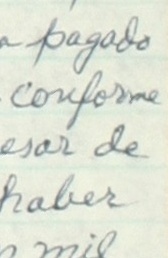 a pagado
conforme
esar de
haber
n mil